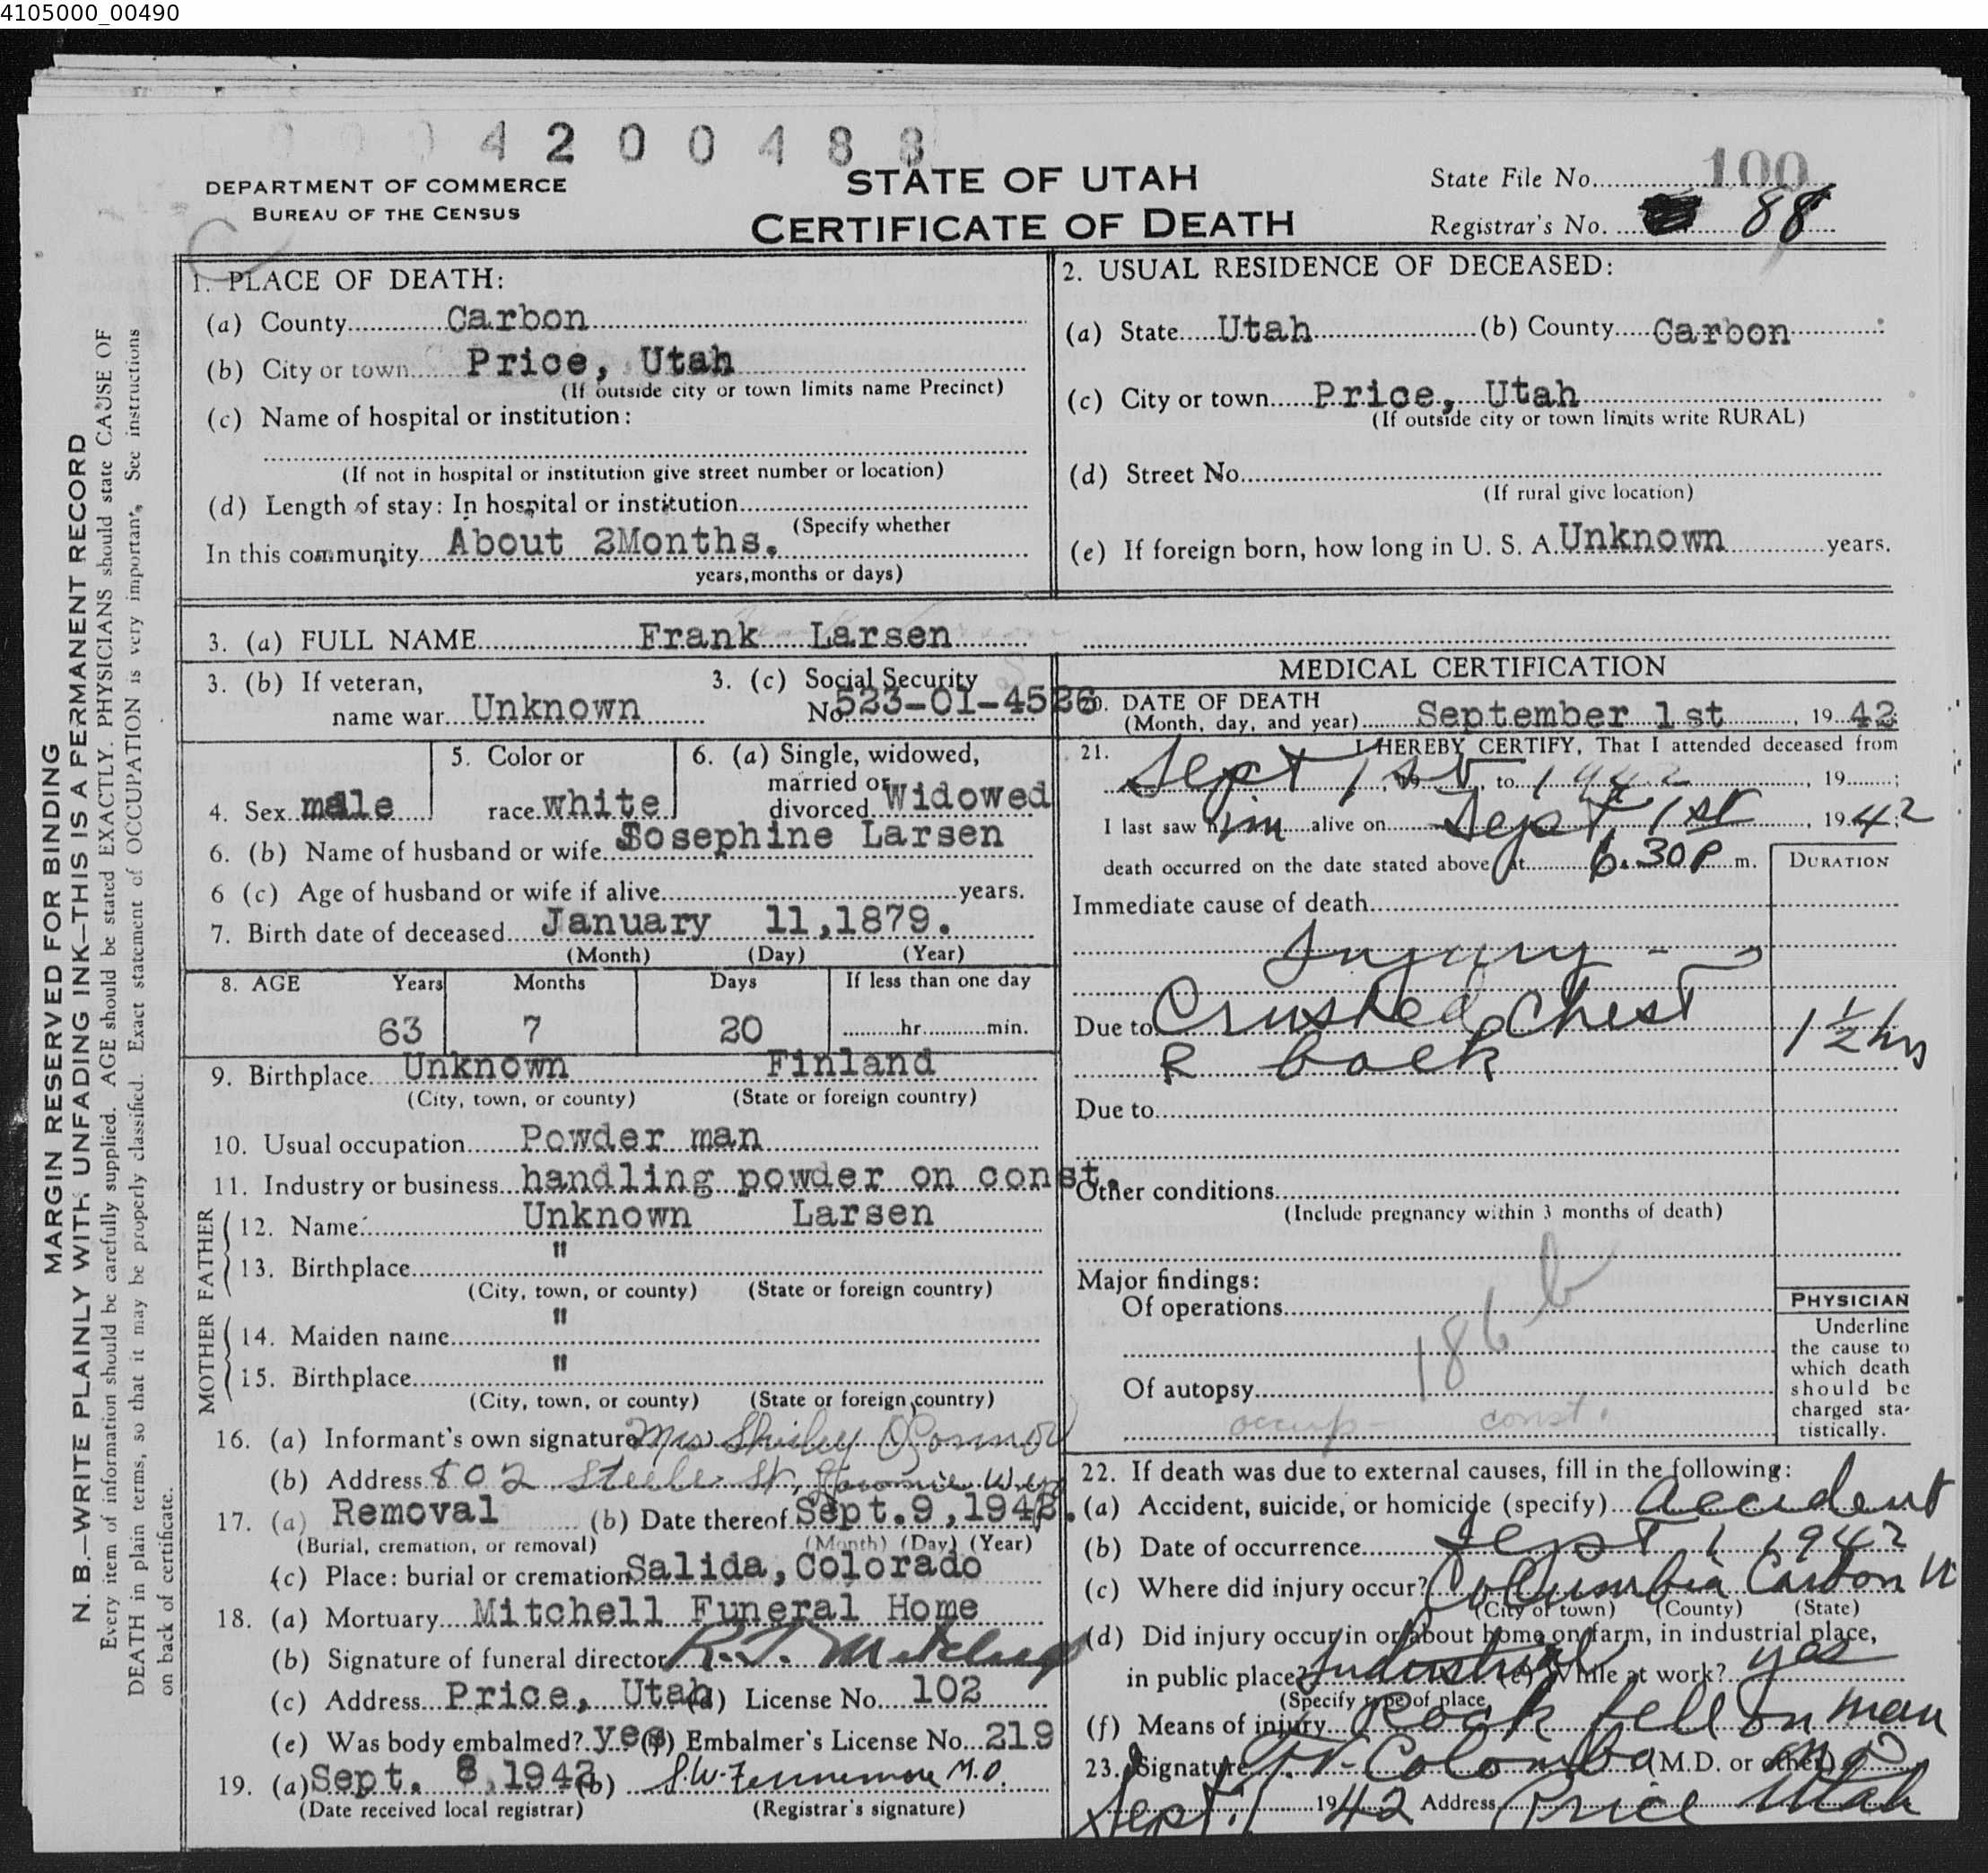 4105000_00490
4 2 0 0 4 8 8
DEPARTMENT OF COMMERCE
BUREAU OF THE CENSUS
STATE OF UTAH
CERTIFICATE OF DEATH
State File No. 100
Registrar's No. 88
MARGIN RESERVED FOR BINDING
N. B.—WRITE PLAINLY WITH UNFADING INK—THIS IS A PERMANENT RECORD
Every item of information should be carefully supplied. AGE should be stated EXACTLY. PHYSICIANS should state CAUSE OF
DEATH in plain terms, so that it may be properly classified. Exact statement of OCCUPATION is very important. See instructions
on back of certificate.
1. PLACE OF DEATH:
(a) County Carbon
(b) City or town Price, Utah
(If outside city or town limits name Precinct)
(c) Name of hospital or institution:
(If not in hospital or institution give street number or location)
(d) Length of stay: In hospital or institution
(Specify whether
In this community About 2Months.
years, months or days)
2. USUAL RESIDENCE OF DECEASED:
(a) State Utah (b) County Carbon
(c) City or town Price, Utah
(If outside city or town limits write RURAL)
(d) Street No.
(If rural give location)
(e) If foreign born, how long in U. S. A. Unknown years.
3. (a) FULL NAME Frank Larsen
3. (b) If veteran,
name war Unknown
3. (c) Social Security
No. 523-01-4526
4. Sex male
5. Color or
race white
6. (a) Single, widowed,
married or
divorced Widowed
6. (b) Name of husband or wife Josephine Larsen
6 (c) Age of husband or wife if alive years.
7. Birth date of deceased January 11,1879.
(Month) (Day) (Year)
8. AGE Years Months Days If less than one day
63 7 20 hr. min.
9. Birthplace Unknown Finland
(City, town, or county) (State or foreign country)
10. Usual occupation Powder man
11. Industry or business handling powder on const.
FATHER
12. Name Unknown Larsen
13. Birthplace "
(City, town, or county) (State or foreign country)
MOTHER
14. Maiden name "
15. Birthplace "
(City, town, or county) (State or foreign country)
16. (a) Informant's own signature Mrs Shirley O'Connor
(b) Address 802 Steele St,
17. (a) Removal (b) Date thereof Sept.9,1942.
(Burial, cremation, or removal) (Month) (Day) (Year)
(c) Place: burial or cremation Salida, Colorado
18. (a) Mortuary Mitchell Funeral Home
(b) Signature of funeral director R.T. Mitchell
(c) Address Price, Utah (d) License No. 102
(e) Was body embalmed? yes (f) Embalmer's License No. 219
19. (a) Sept. 8,1942 (b) S.W. Fennemore M.D.
(Date received local registrar) (Registrar's signature)
MEDICAL CERTIFICATION
20. DATE OF DEATH
(Month, day, and year) September 1st, 19 42
21. I HEREBY CERTIFY, That I attended deceased from
Sept 1st, 19 , to 1942, 19 ;
I last saw him alive on Sept 1st, 19 42;
death occurred on the date stated above at 6:30 P m.
DURATION
Immediate cause of death
Injury -
Due to Crushed Chest
R back
1½ hrs
Due to
Other conditions
(Include pregnancy within 3 months of death)
Major findings:
Of operations
186 b
Of autopsy
occup - const.
PHYSICIAN
Underline
the cause to
which death
should be
charged sta-
tistically.
22. If death was due to external causes, fill in the following:
(a) Accident, suicide, or homicide (specify) Accident
(b) Date of occurrence Sept 1 1942
(c) Where did injury occur? Columbia Carbon U
(City or town) (County) (State)
(d) Did injury occur in or about home, on farm, in industrial place,
in public place? Industrial (e) While at work? yes
(Specify type of place)
(f) Means of injury Rock fell on man
23. Signature Colombo (M.D. or other) MD
Sept. 1 1942 Address Price Utah